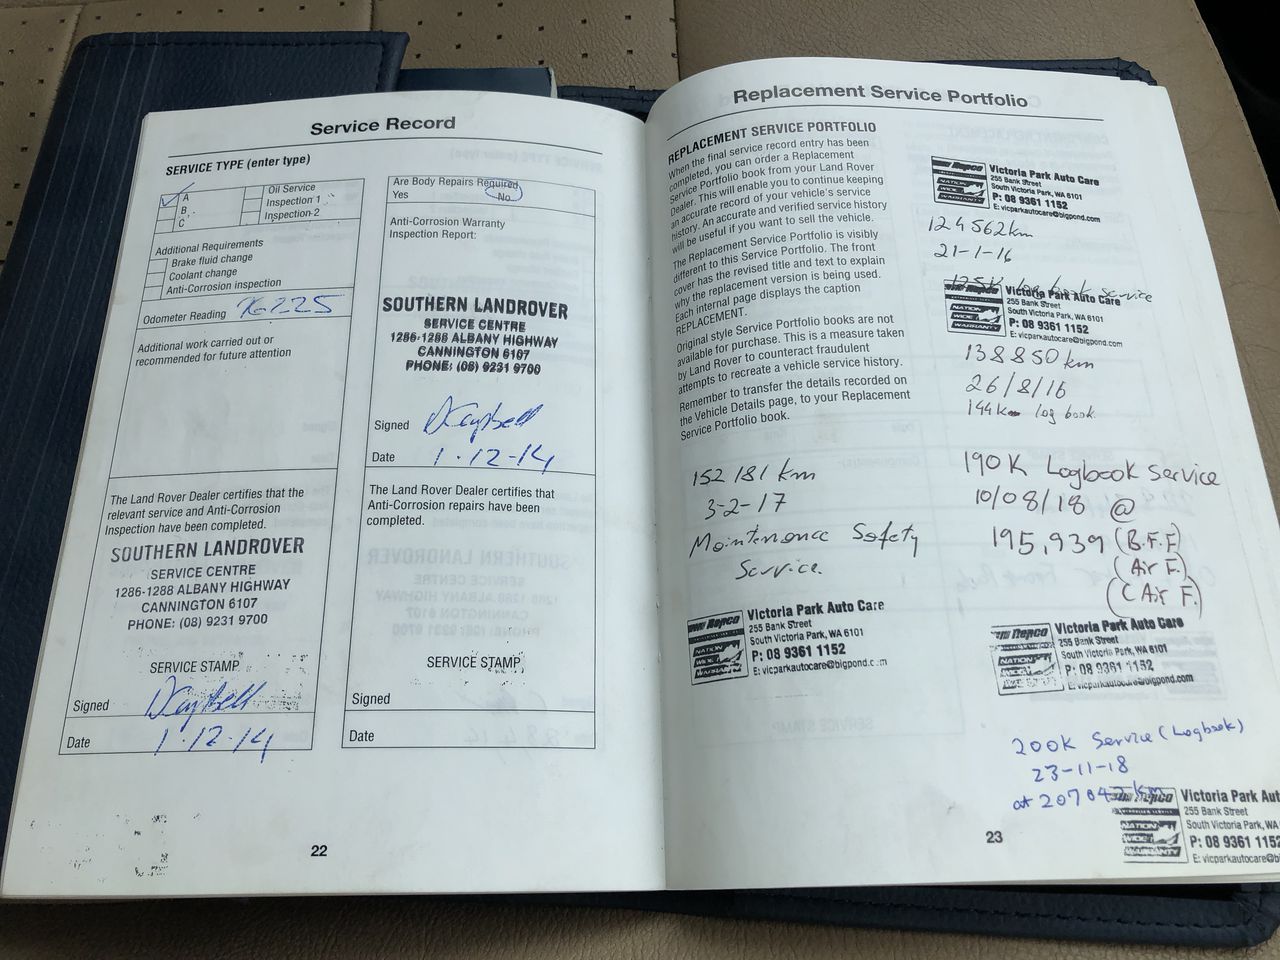 Service Record
SERVICE TYPE (enter type)
A
B
C
Oil Service
Inspection 1
Inspection 2
Additional Requirements
Brake fluid change
Coolant change
Anti-Corrosion inspection
Odometer Reading
Additional work carried out or
recommended for future attention
The Land Rover Dealer certifies that the
relevant service and Anti-Corrosion
Inspection have been completed.
SOUTHERN LANDROVER
SERVICE CENTRE
1286-1288 ALBANY HIGHWAY
CANNINGTON 6107
PHONE: (08) 9231 9700
SERVICE STAMP
Signed
Date 1-12-14
Are Body Repairs Required
Yes No
Anti-Corrosion Warranty
Inspection Report:
SOUTHERN LANDROVER
SERVICE CENTRE
1286-1288 ALBANY HIGHWAY
CANNINGTON 6107
PHONE: (08) 9231 9700
Signed
Date 1-12-14
The Land Rover Dealer certifies that
Anti-Corrosion repairs have been
completed.
SERVICE STAMP
Signed
Date
22
Replacement Service Portfolio
REPLACEMENT SERVICE PORTFOLIO
When the final service record entry has been
completed, you can order a Replacement
Service Portfolio book from your Land Rover
Dealer. This will enable you to continue keeping
an accurate record of your vehicle's service
history. An accurate and verified service history
will be useful if you want to sell the vehicle.
The Replacement Service Portfolio is visibly
different to this Service Portfolio. The front
cover has the revised title and text to explain
why the replacement version is being used.
Each internal page displays the caption
REPLACEMENT.
Original style Service Portfolio books are not
available for purchase. This is a measure taken
by Land Rover to counteract fraudulent
attempts to recreate a vehicle service history.
Remember to transfer the details recorded on
the Vehicle Details page, to your Replacement
Service Portfolio book.
152 181 km
3-2-17
Maintenance Safety
Service.
Repco
NATION
WIDE
WARRANTY
Victoria Park Auto Care
255 Bank Street
South Victoria Park, WA 6101
P: 08 9361 1152
E: vicparkautocare@bigpond.com
Repco
NATION
WIDE
WARRANTY
Victoria Park Auto Care
255 Bank Street
South Victoria Park, WA 6101
P: 08 9361 1152
E: vicparkautocare@bigpond.com
124562km
21-1-16
125K Log book Service
Repco
NATION
WIDE
WARRANTY
Victoria Park Auto Care
255 Bank Street
South Victoria Park, WA 6101
P: 08 9361 1152
E: vicparkautocare@bigpond.com
138850km
26/8/16
144km log book
190K Logbook Service
10/08/18 @
195,939 (B.F.F)
(Air F.)
(C Air F.)
Repco
NATION
WIDE
WARRANTY
Victoria Park Auto Care
255 Bank Street
South Victoria Park, WA 6101
P: 08 9361 1152
E: vicparkautocare@bigpond.com
200K Service (Logbook)
23-11-18
at 207042 km
Repco
NATION
WIDE
WARRANTY
Victoria Park Aut
255 Bank Street
South Victoria Park, WA
P: 08 9361 1152
E: vicparkautocare@b
23